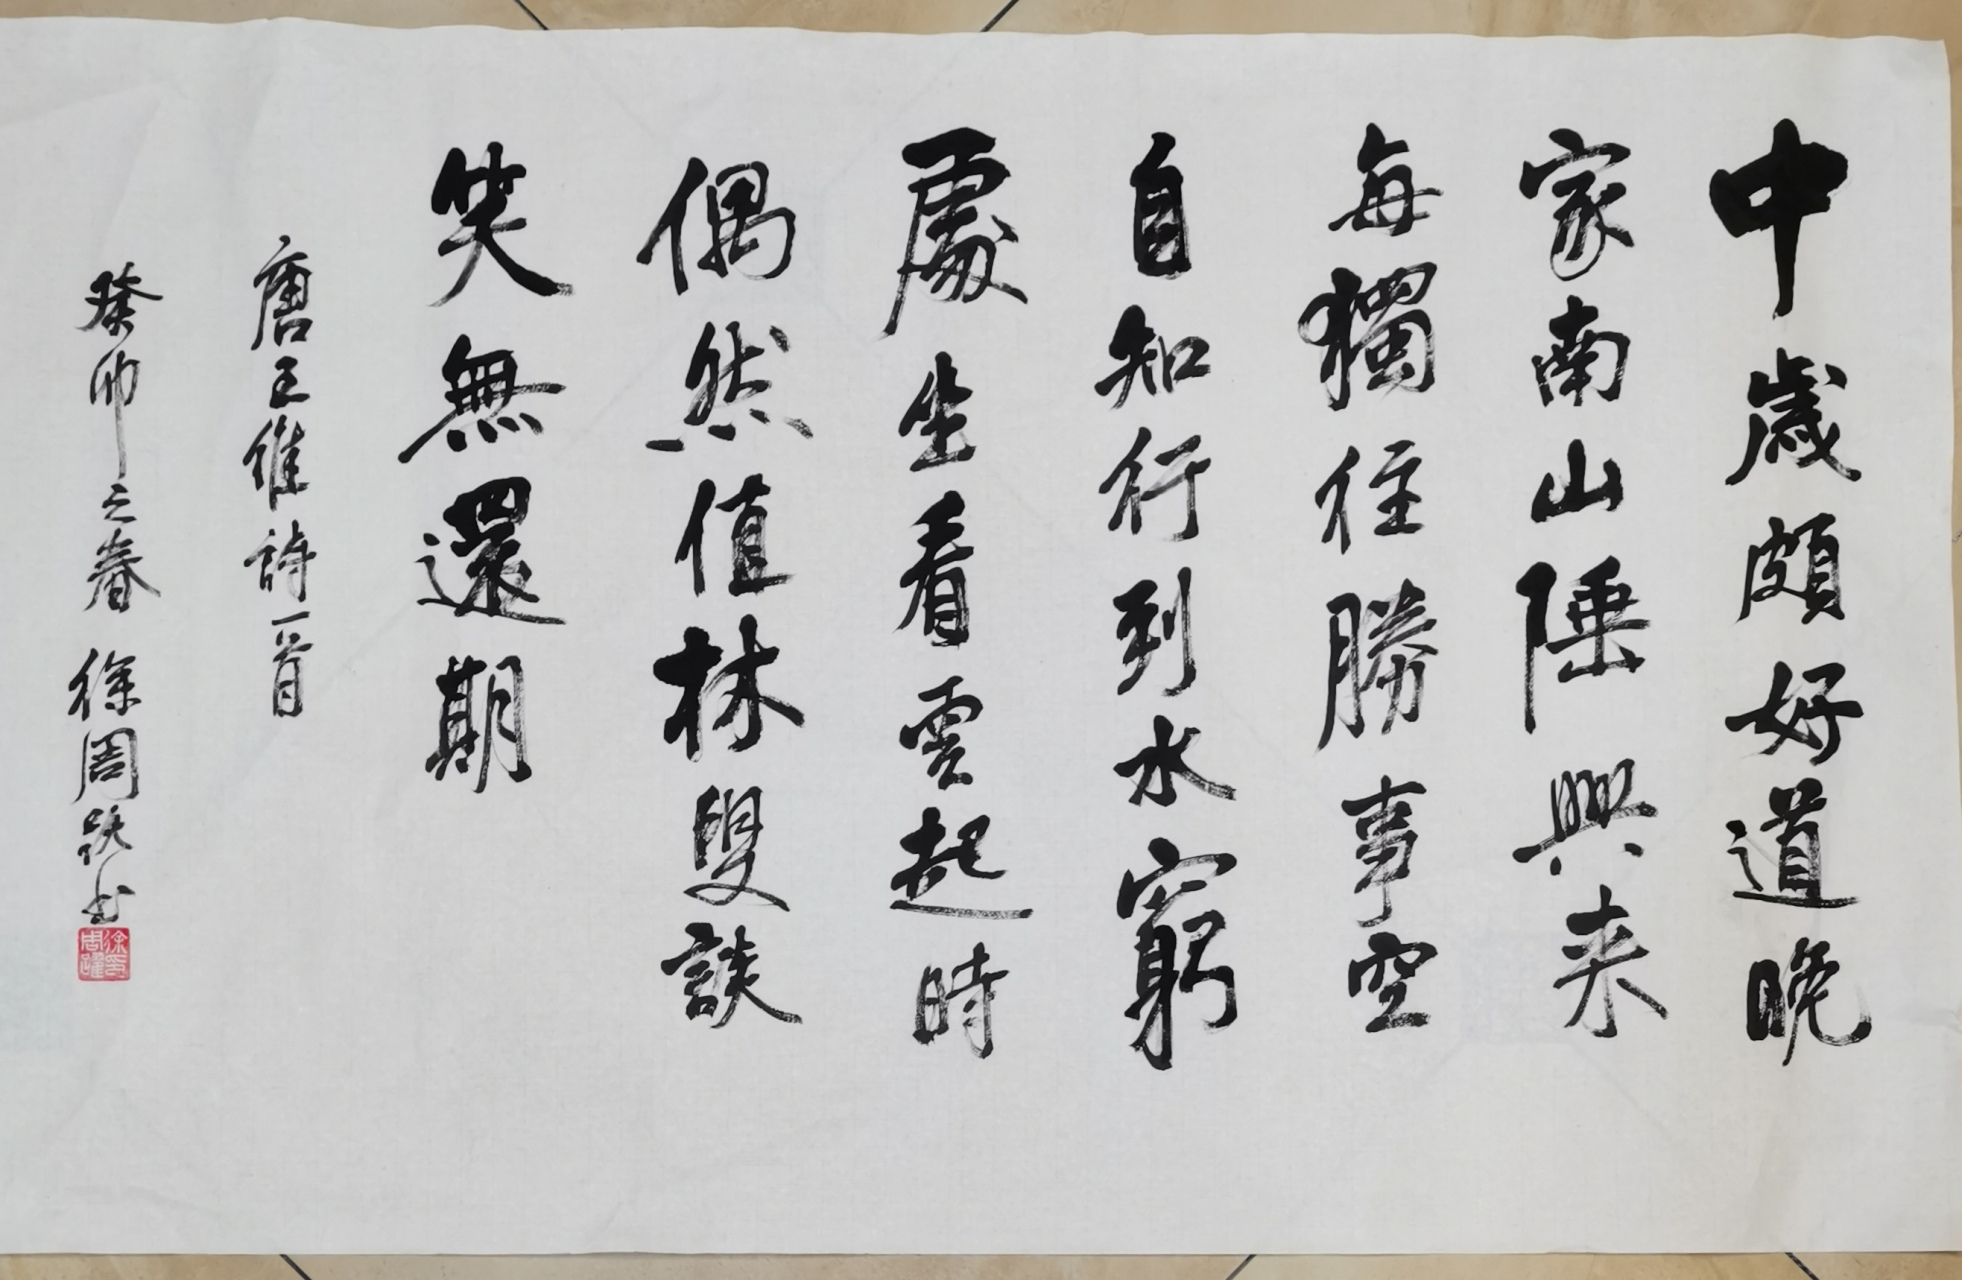 中歲頗好道晚
家南山陲興来
每獨往勝事空
自知行到水窮
處坐看雲起時
偶然值林叟談
笑無還期
唐王維詩一首
癸卯之春 徐周跃书
徐印周躍